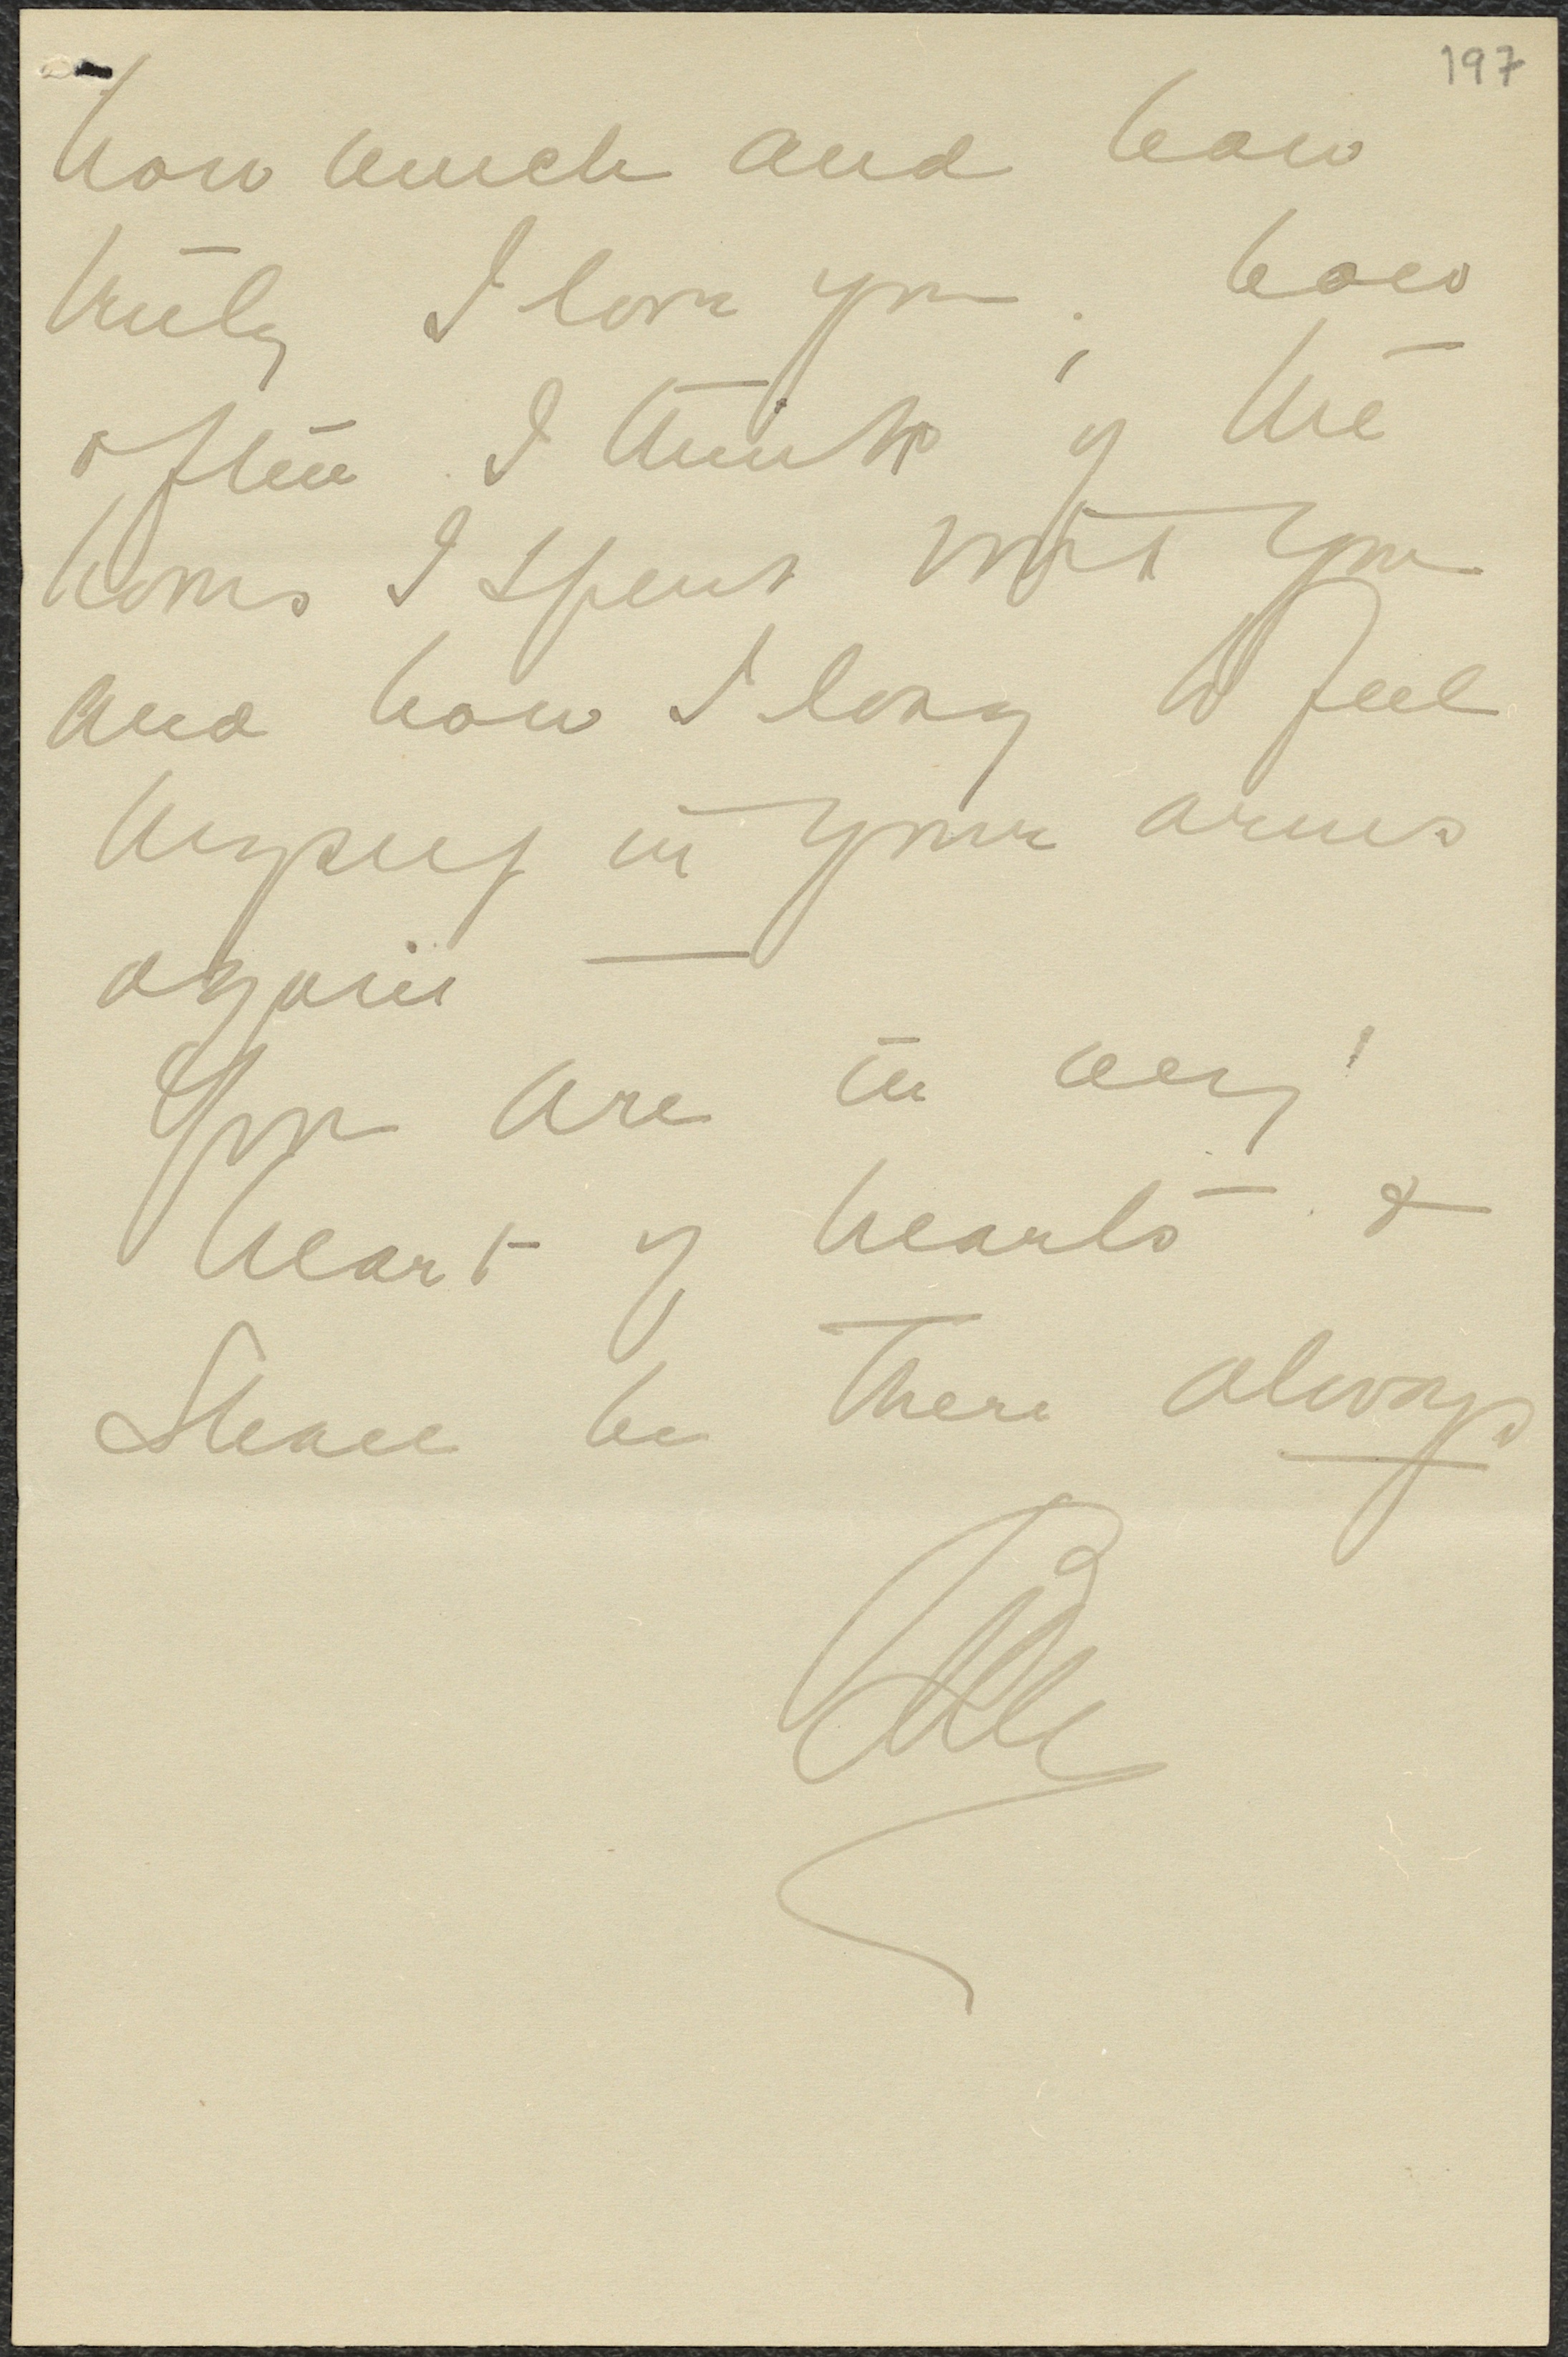 197
how much and how
truly I love you; how
often I think of the
hours I spent with you
and how I long to feel
myself in your arms
again —
You are in my
heart of hearts &
shall be there always